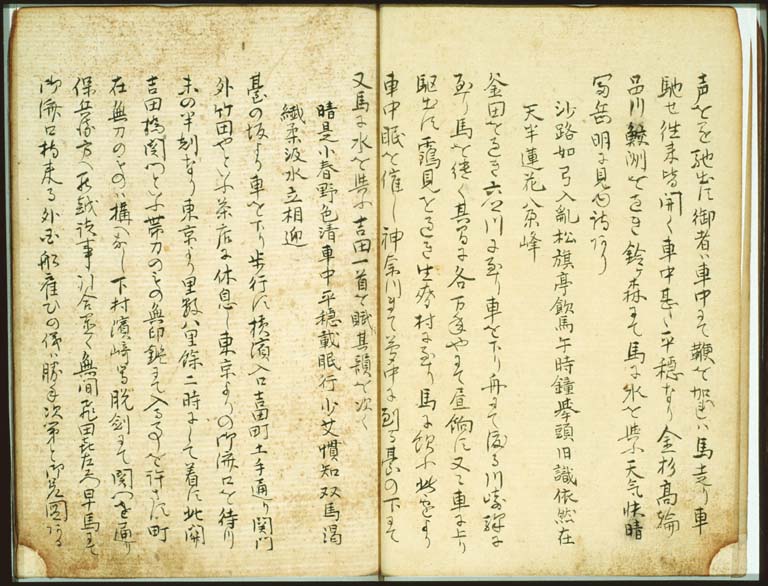 声をを馳出に御者ハ車中にて鞭を加れハ馬走り車
馳せ往来皆開く車中甚た平穏なり金杉高輪
品川鮫洲を過き鈴ヶ森にて馬に水を与ふ天気快晴
冨岳明に見ゆ詩あり
沙路如弓入乱松旗亭飲馬午時鐘挙頭旧識依然在
天半蓮花八朶峰
釜田を過き六郷川に至り車を下り舟にて渡る川崎駅に
至り馬を継く其間に各万年やにて昼餉に又々車に上り
駆出に鶴見を過き生麦村に至り馬に飲ふ此辺より
車中眠を催し神奈川まて夢中に到る甚の下まて
又馬に水を与ふ吉田一首を賦其韻を次く
晴是小春野色清車中平穏載眠行少女慣知双馬渇
繊柔汲水立相迎
甚の坂より車を下り歩行に横濱入口吉田町土手通り関門
外竹田やといふ茶店に休息し東京よりの御済口を待り
未の半刻なり東京より里数八里餘二時にして着に此関
吉田橋関門といふ帯刀のもの無印鑑にて入る事を許さす町
在無刀のものハ構へなし下村濱崎等脱剣にて関門を通り
保兵衛方へ罷越諸事引合置く無間飛田㐂左衛門早馬にて
御済口持来る外国船雇ひの儀ハ勝手次第と御差図ある